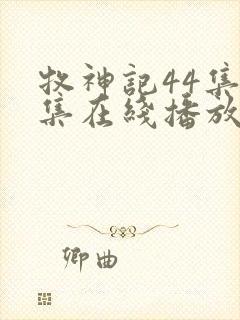 牧神記44集
集在綫播放
卿曲